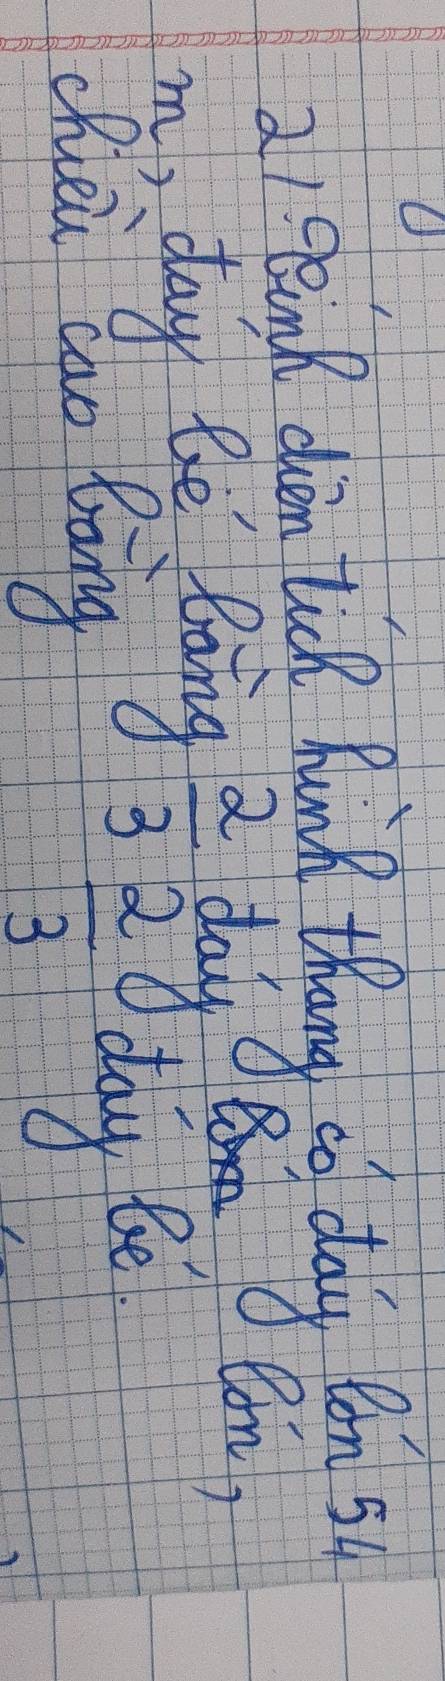 2/ Tính diện tích hình thang có đáy lớn 54
m, đáy bé bằng 2/3 đáy lớn lớn,
chiều cao bằng 2/3 đáy bé.